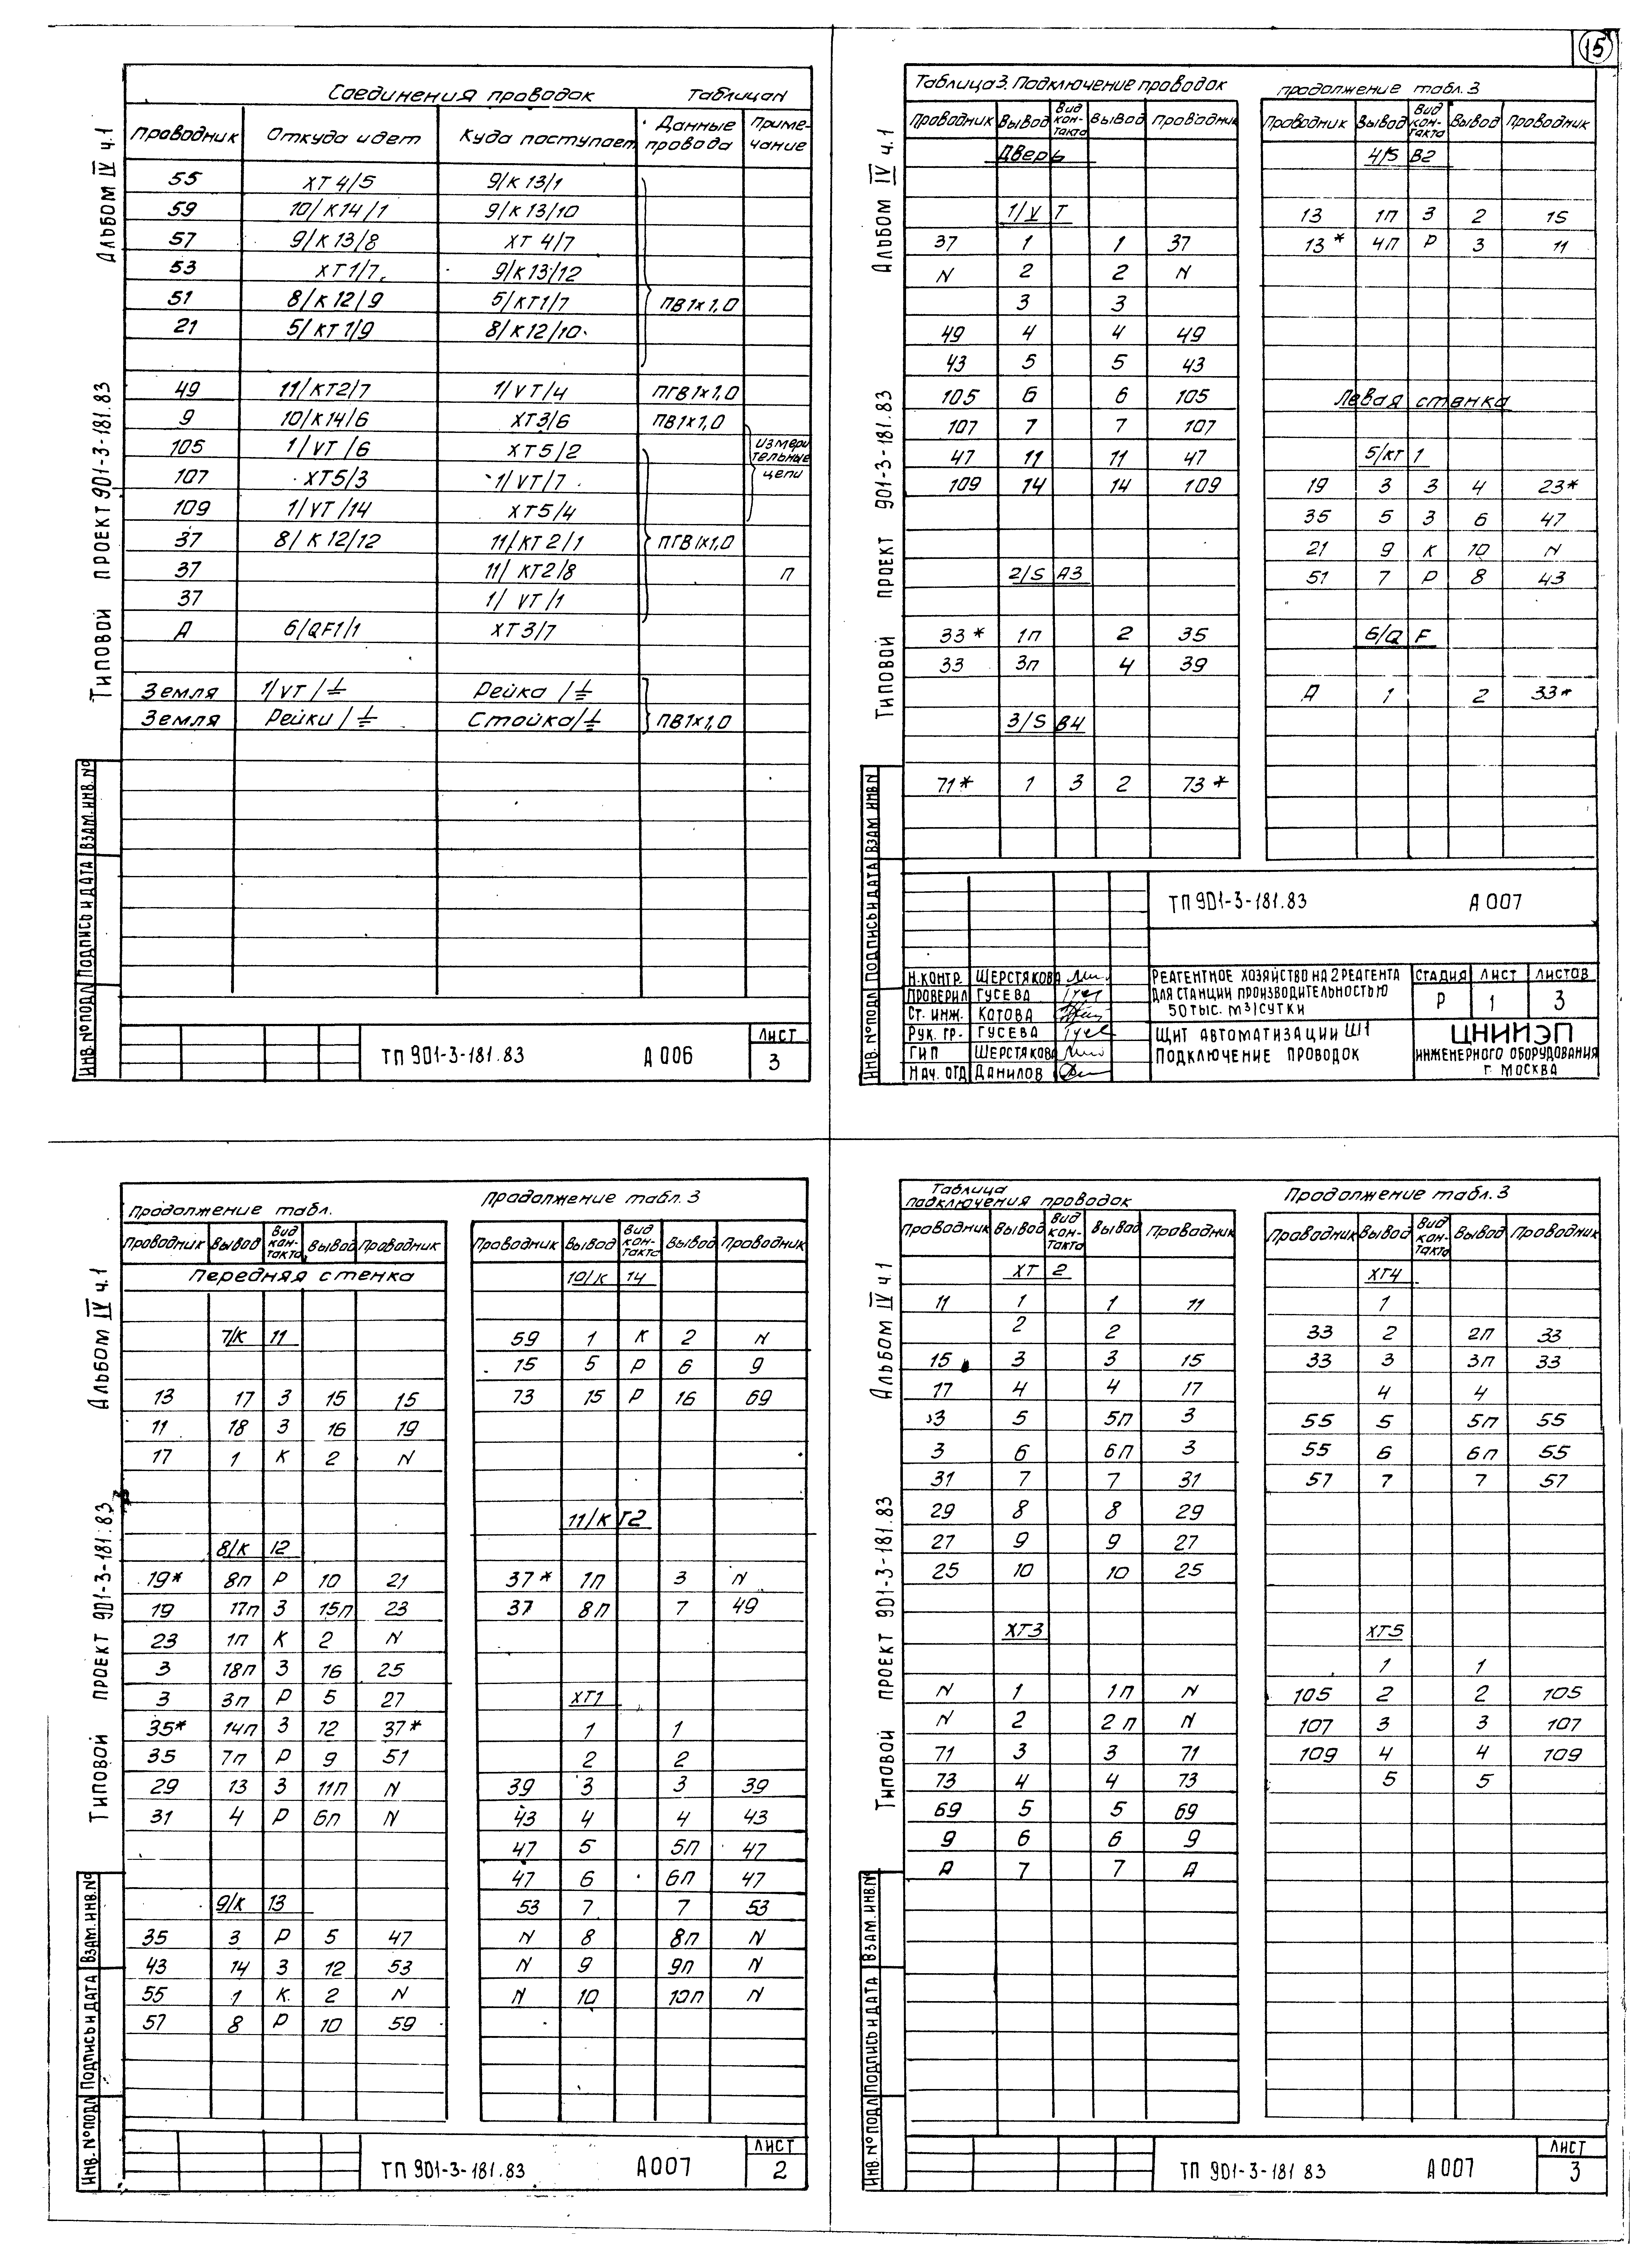 15
Альбом IV ч.1
Типовой проект 901-3-181.83
Соединения проводок Таблица N
Проводник Откуда идет Куда поступает Данные провода Примечание
55 XT4/5 9/К13/1
59 10/К14/1 9/К13/10
57 9/К13/8 XT4/7
53 XT1/7 9/К13/12
51 8/К12/9 5/КТ1/7 ПВ1х1,0
21 5/КТ1/9 8/К12/10
49 11/КТ2/7 1/VT/4 ПГВ1х1,0
9 10/К14/6 XT3/6 ПВ1х1,0
105 1/VT/6 XT5/2 измерительные цепи
107 XT5/3 1/VT/7
109 1/VT/14 XT5/4
37 8/К12/12 11/КТ2/1 ПГВ1х1,0
37 11/КТ2/8 П
37 1/VT/1
А 6/QF1/1 XT3/7
Земля 1/VT/⏚ Рейка/⏚
Земля Рейки/⏚ Стойка/⏚ ПВ1х1,0
Инв. № подл Подпись и дата Взам. инв. №
ТП 901-3-181.83 А 006 Лист 3
Альбом IV ч.1
Типовой проект 901-3-181.83
Таблица 3. Подключение проводок
Проводник Вывод Вид контакта Вывод Проводник
Дверь
1/VT
37 1 1 37
N 2 2 N
3 3
49 4 4 49
43 5 5 43
105 6 6 105
107 7 7 107
47 11 11 47
109 14 14 109
2/SA3
33* 1п 2 35
33 3п 4 39
3/SВ4
71* 1 З 2 73*
продолжение табл. 3
Проводник Вывод Вид контакта Вывод Проводник
4/SВ2
13 1п З 2 15
13* 4п Р 3 11
Левая стенка
5/КТ1
19 3 З 4 23*
35 5 З 6 47
21 9 К 10 N
51 7 Р 8 43
6/QF
А 1 2 33*
Инв. № подл Подпись и дата Взам инв N
ТП 901-3-181.83 А 007
Н.контр. Шерстякова
Проверил Гусева
Ст. инж. Котова
Рук. гр. Гусева
ГИП Шерстякова
Нач. отд Данилов
Реагентное хозяйство на 2 реагента
для станции производительностью
50 тыс. м³/сутки
Щит автоматизации Щ1
Подключение проводок
Стадия Лист Листов
Р 1 3
ЦНИИЭП
инженерного оборудования
г. Москва
Альбом IV ч.1
Типовой проект 901-3-181.83
Продолжение табл.
Проводник Вывод Вид контакта Вывод Проводник
Передняя стенка
7/К11
13 17 З 15 15
11 18 З 16 19
17 1 К 2 N
8/К12
19* 8п Р 10 21
19 17п З 15п 23
23 1п К 2 N
3 18п З 16 25
3 3п Р 5 27
35* 14п З 12 37*
35 7п Р 9 51
29 13 З 11п N
31 4 Р 6п N
9/К13
35 3 Р 5 47
43 14 З 12 53
55 1 К 2 N
57 8 Р 10 59
Продолжение табл. 3
Проводник Вывод Вид контакта Вывод Проводник
10/К14
59 1 К 2 N
15 5 Р 6 9
73 15 Р 16 69
11/КТ2
37* 1п 3 N
37 8п 7 49
XT1
1 1
2 2
39 3 3 39
43 4 4 43
47 5 5п 47
47 6 6п 47
53 7 7 53
N 8 8п N
N 9 9п N
N 10 10п N
Инв. № подл Подпись и дата Взам. инв. №
ТП 901-3-181.83 А 007 Лист 2
Альбом IV ч.1
Типовой проект 901-3-181.83
Таблица
подключения проводок
Проводник Вывод Вид контакта Вывод Проводник
XT2
11 1 1 11
2 2
15 3 3 15
17 4 4 17
3 5 5п 3
3 6 6п 3
31 7 7 31
29 8 8 29
27 9 9 27
25 10 10 25
XT3
N 1 1п N
N 2 2п N
71 3 3 71
73 4 4 73
69 5 5 69
9 6 6 9
А 7 7 А
Продолжение табл. 3
Проводник Вывод Вид контакта Вывод Проводник
XT4
1
33 2 2п 33
33 3 3п 33
4 4
55 5 5п 55
55 6 6п 55
57 7 7 57
XT5
1 1
105 2 2 105
107 3 3 107
109 4 4 109
5 5
Инв. № подл Подпись и дата Взам. инв. №
ТП 901-3-181 83 А 007 Лист 3